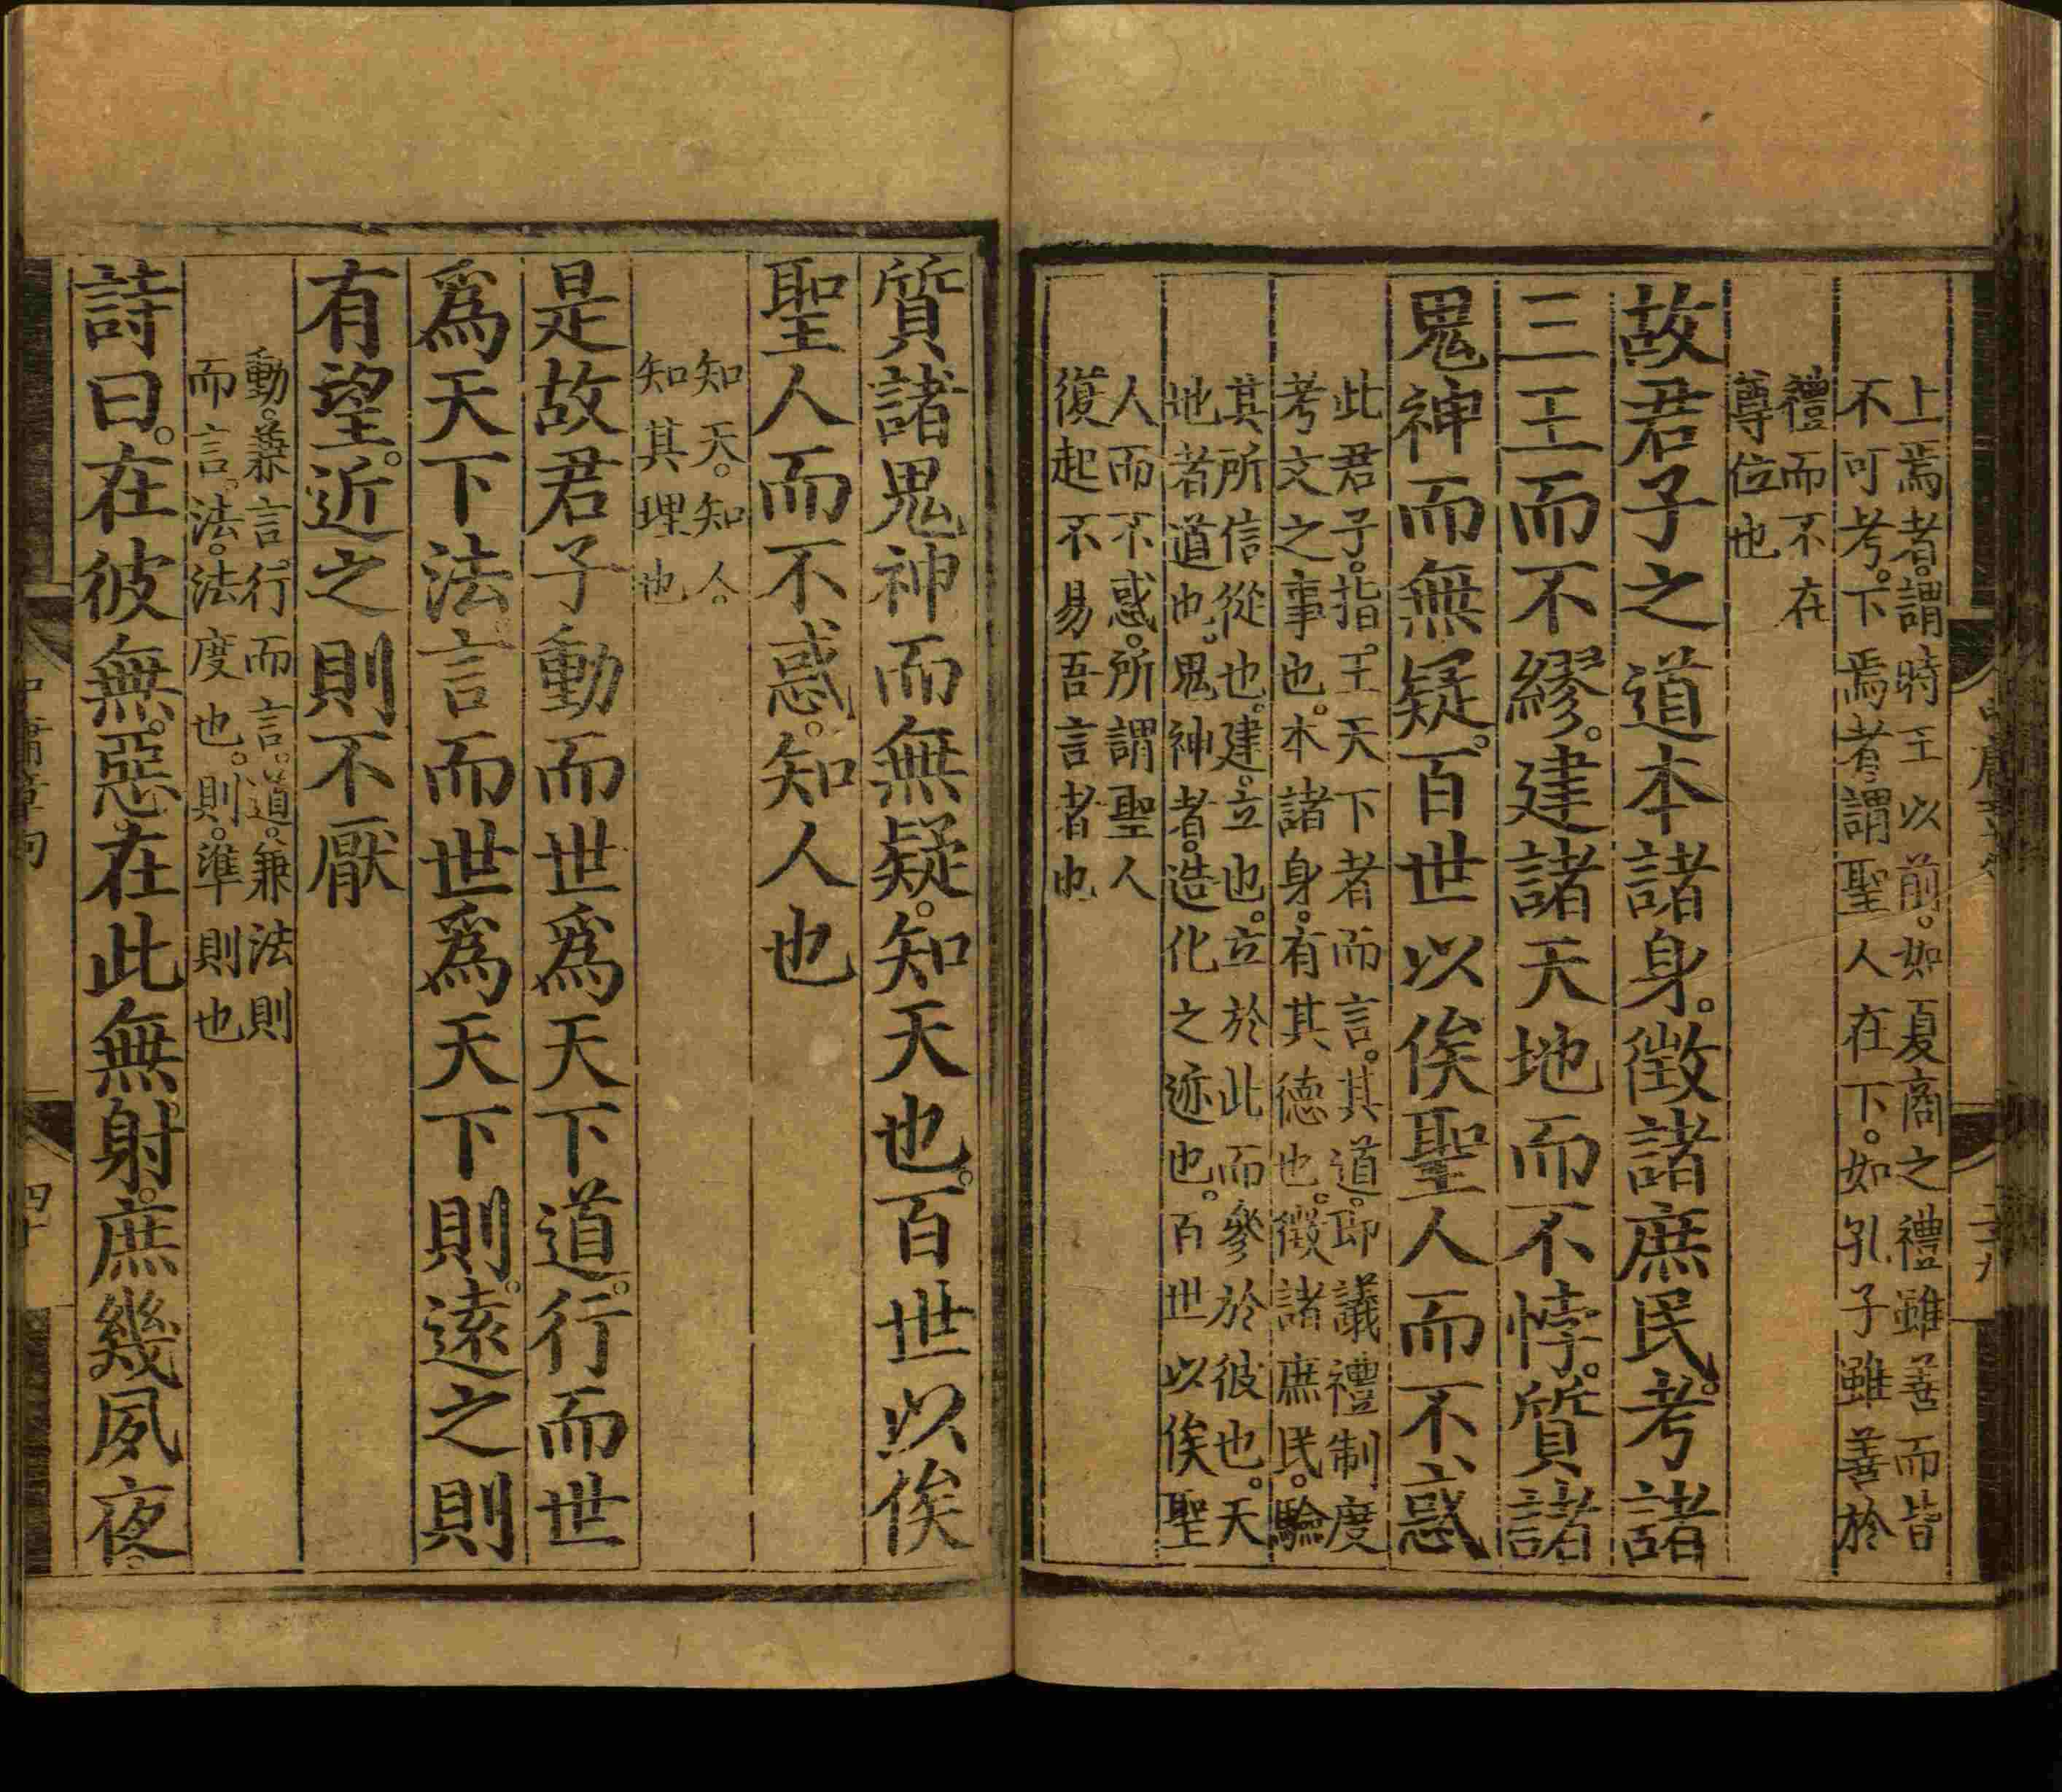 上焉者。謂時王以前。如夏商之禮雖善而皆
不可考。下焉者。謂聖人在下。如孔子雖善於
禮而不在
尊位也
故君子之道本諸身。徵諸庶民。考諸
三王而不繆。建諸天地而不悖。質諸
鬼神而無疑。百世以俟聖人而不惑
此君子。指。王天下者而言。其道。卽議禮制度
考文之事也。本諸身。有其德也。徵諸庶民。驗
其所信從也。建。立也。立於此而參於彼也。天
地者。道也。鬼神者。造化之迹也。百世以俟聖
人而不惑。所謂聖人
復起不易吾言者也
質諸鬼神而無疑。知天也。百世以俟
聖人而不惑。知人也
知天。知人。
知其理也
是故君子動而世爲天下道。行而世
爲天下法。言而世爲天下則。遠之則
有望。近之則不厭
動。兼言。行而言。道。兼法則
而言。法。法度也。則。準則也
詩曰。在彼無。惡。在此無。射。庶幾夙夜。
中庸章句
四十